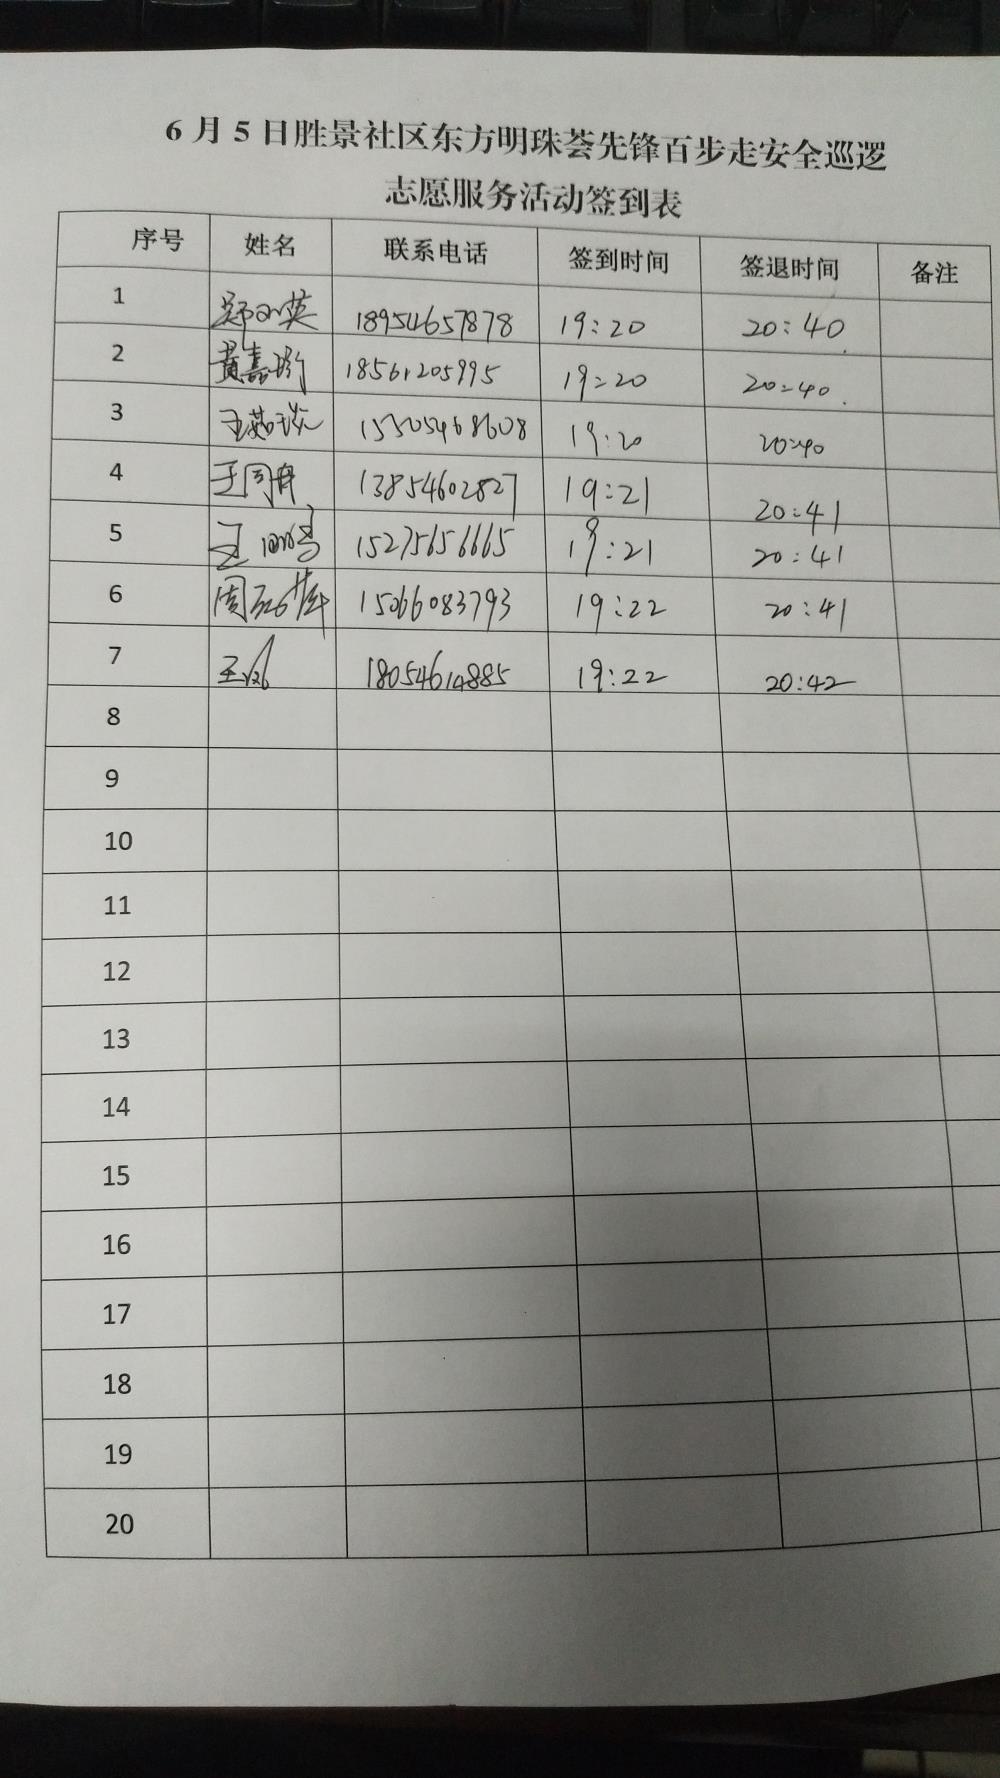 6月5日胜景社区东方明珠荟先锋百步走安全巡逻
志愿服务活动签到表
序号 姓名 联系电话 签到时间 签退时间 备注
1 18954657878 19:20 20:40
2 黄嘉 18561205995 19:20 20:40
3 王 15505468608 19:20 20:40
4 王同舟 13854602827 19:21 20:41
5 王 15275656665 19:21 20:41
6 周 15066083793 19:22 20:41
7 王 18054614885 19:22 20:42
8
9
10
11
12
13
14
15
16
17
18
19
20